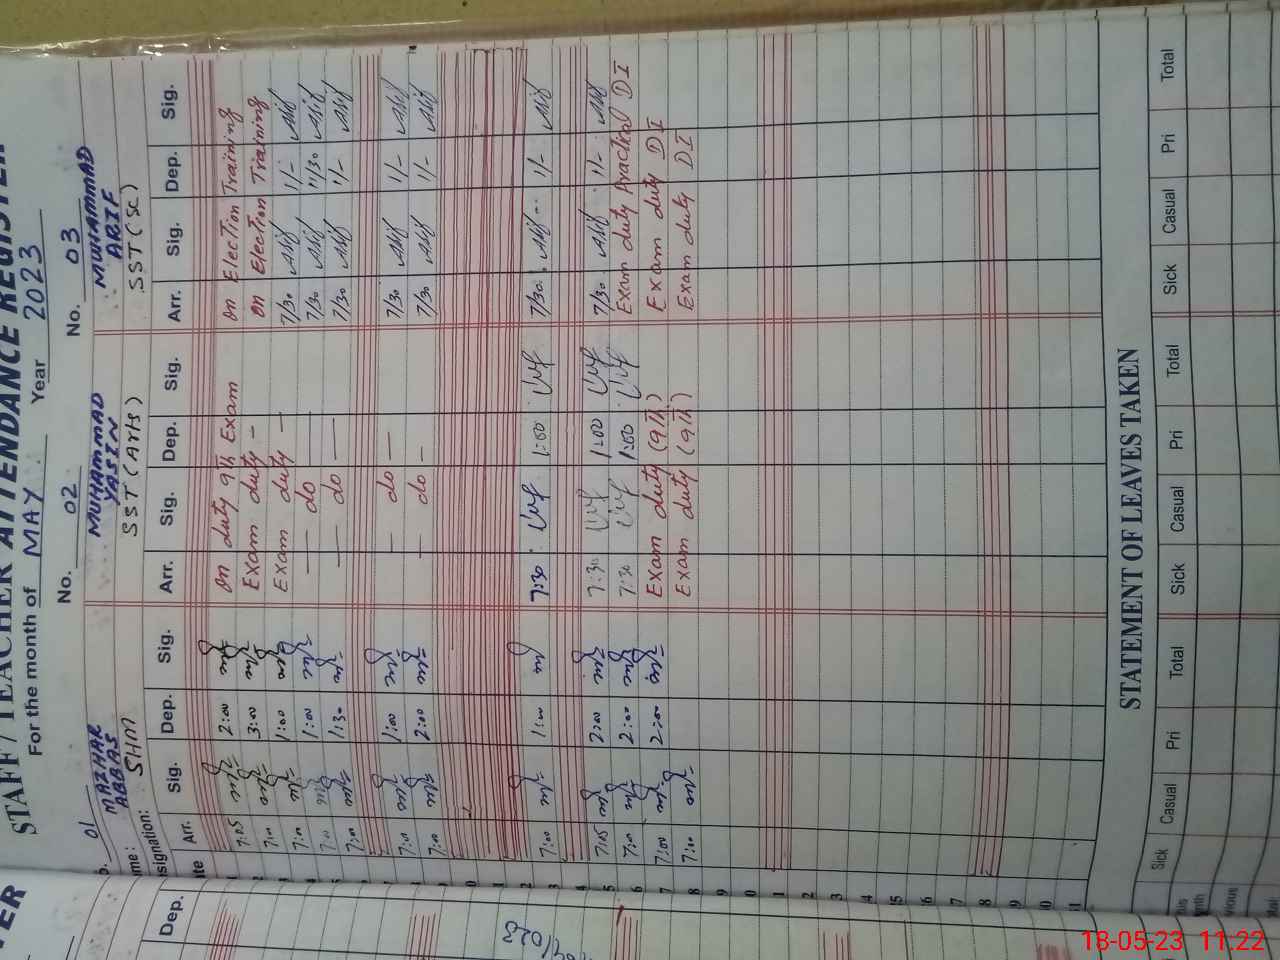 STAFF / TEACHER ATTENDANCE REGISTER
For the month of MAY Year 2023
01 No. 02 No. 03
MAZHAR ABBAS MUHAMMAD YASIN MUHAMMAD ARIF
SHM SST (Arts) SST (SC)
Arr. Sig. Dep. Sig. Arr. Sig. Dep. Sig. Arr. Sig. Dep. Sig.
1 7:05 2:00 on duty 9th Exam on Election Training
2 7:00 3:00 Exam duty — on Election Training
3 7:00 1:00 Exam duty — 7/30 1/-
4 7:00 1:00 — do — 7/30 11/30
5 7:00 1:30 — do — 7/30 1/-
7:00 1:00 — do — 7/30 1/-
7:00 2:00 — do — 7/30 1/-
2
3 7:00 1:00 7:30 1:00 7/30 1/-
4
5 7:05 2:00 7:30 1:00 7/30 1/-
6 7:00 2:00 7:30 1:00 Exam duty Practical DI
7 7:00 2:00 Exam duty (9th) Exam duty DI
8 7:00 Exam duty (9th) Exam duty DI
9
0
1
2
3
4
5
6
7
8
9
30
31
STATEMENT OF LEAVES TAKEN
Sick Casual Pri Total Sick Casual Pri Total Sick Casual Pri Total
Dep.
18-05-23 11.22